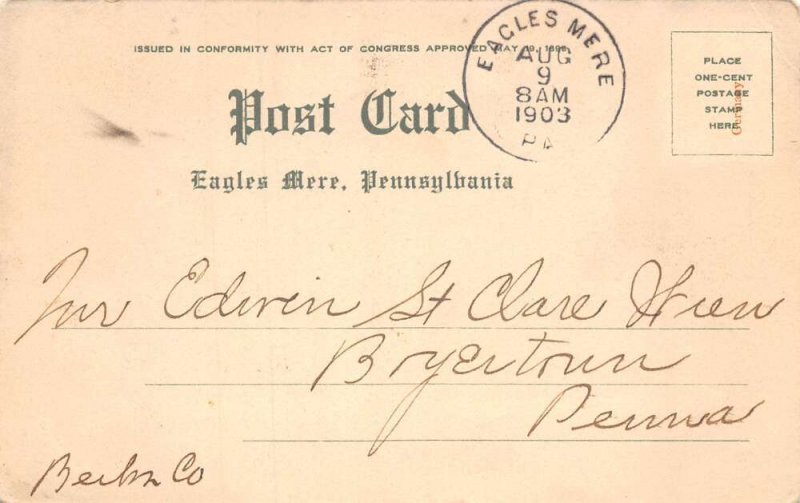 ISSUED IN CONFORMITY WITH ACT OF CONGRESS APPROVED MAY 19, 1898.
EAGLES MERE
AUG
9
8AM
1903
PA
PLACE
ONE-CENT
POSTAGE
STAMP
HERE
Germany
Post Card
Eagles Mere, Pennsylvania
Edwin St Clare
Boyertown
Penna
Berks Co